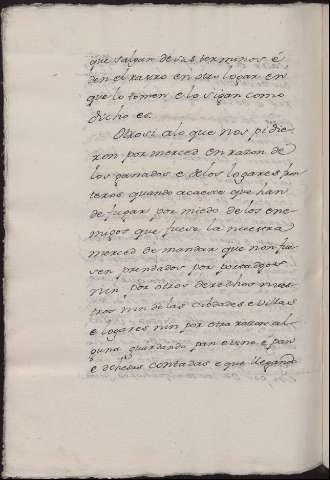 que salgan de sus terminos é
den el rastro en otro logar en
que lo tomen e lo sigan como
dicho es.
Otrosi a lo que nos pidie
ron por merced en razon de
los ganados e de los logares fron
teros quando acaesce que han
de fugar por miedo de los ene
migos que fuese la nuestra
merced de mandar que non fue
sen prendados por portadgos
nin por otros derechos nues
tros nin de las cibdades e villas
e logares nin por otra razon al
guna guardando pan e vino e pan
e dehesas contadas e que llegando